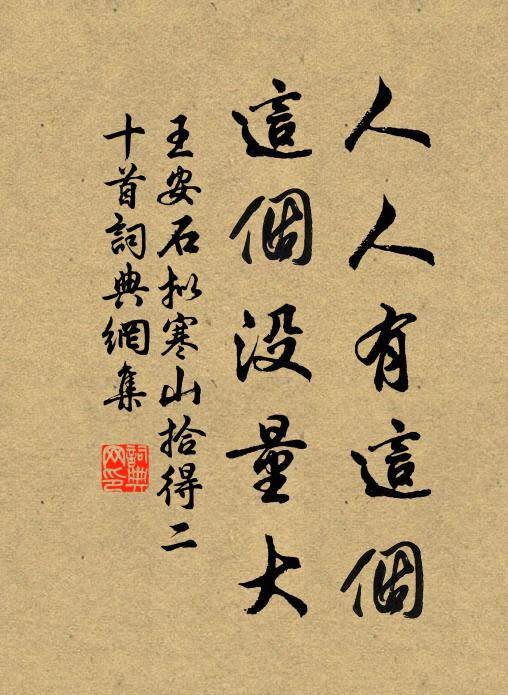 人人有這個
這個没量大
王安石拟寒山拾得二
十首詞典網集
詞典
网印